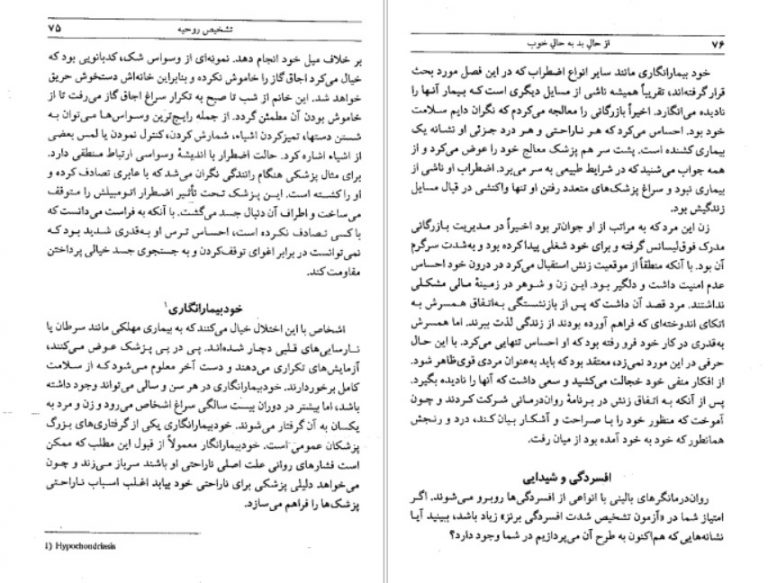 تشخیص روحیه ۷۵
بر خلاف میل خود انجام دهد. نمونه‌ای از وسواس شک، کدبانویی بود که
خیال می‌کرد اجاق گاز را خاموش نکرده و بنابراین خانه‌اش دستخوش حریق
خواهد شد. این خانم از شب تا صبح به تکرار سراغ اجاق گاز می‌رفت تا از
خاموش بودن آن مطمئن گردد. از جمله رایج‌ترین وسواس‌ها می‌توان به
شستن دستها، تمیزکردن اشیاء، شمارش‌کردن، کنترل نمودن یا لمس بعضی
از اشیاء اشاره کرد. حالت اضطرار با اندیشهٔ وسواسی ارتباط منطقی دارد.
برای مثال پزشکی هنگام رانندگی نگران می‌شد که با عابری تصادف کرده و
او را کشته است. این پزشک تحت تأثیر اضطرار اتومبیلش را متوقف
می‌ساخت و اطراف آن دنبال جسد می‌گشت. با آنکه به فراست می‌دانست که
با کسی تصادف نکرده است، احساس ترس او به‌قدری شدید بود که
نمی‌توانست در برابر اغوای توقف‌کردن و به جستجوی جسد خیالی پرداختن
مقاومت کند.
خودبیمارانگاری۱
اشخاص با این اختلال خیال می‌کنند که به بیماری مهلکی مانند سرطان یا
نارسایی‌های قلبی دچار شده‌اند. پی در پی پزشک عوض می‌کنند،
آزمایش‌های تکراری می‌دهند و دست آخر معلوم می‌شود که از سلامت
کامل برخوردارند. خودبیمارانگاری در هر سن و سالی می‌تواند وجود داشته
باشد، اما بیشتر در دوران بیست سالگی سراغ اشخاص می‌رود و زن و مرد به
یکسان به آن گرفتار می‌شوند. خودبیمارانگاری یکی از گرفتاری‌های بزرگ
پزشکان عمومی است. خودبیمارانگار معمولاً از قبول این مطلب که ممکن
است فشارهای روانی علت اصلی ناراحتی او باشند سرباز می‌زند و چون
می‌خواهد دلیلی پزشکی برای ناراحتی خود بیابد اغلب اسباب ناراحتی
پزشک‌ها را فراهم می‌سازد.
1) Hypochondriasis
۷۶ از حال بد به حال خوب
خود بیمارانگاری مانند سایر انواع اضطراب که در این فصل مورد بحث
قرار گرفته‌اند، تقریباً همیشه ناشی از مسایل دیگری است که بیمار آنها را
نادیده می‌انگارد. اخیراً بازرگانی را معالجه می‌کردم که نگران دایم سلامت
خود بود. احساس می‌کرد که هر ناراحتی و هر درد جزئی او نشانه یک
بیماری کشنده است. پشت سر هم پزشک معالج خود را عوض می‌کرد و از
همه جواب می‌شنید که در شرایط طبیعی به سر می‌برد. اضطراب او ناشی از
بیماری نبود و سراغ پزشک‌های متعدد رفتن او تنها واکنشی در قبال مسایل
زندگیش بود.
زن این مرد که به مراتب از او جوان‌تر بود اخیراً در مدیریت بازرگانی
مدرک فوق‌لیسانس گرفته و برای خود شغلی پیدا کرده بود و به‌شدت سرگرم
آن بود. با آنکه منطقاً از موقعیت زنش استقبال می‌کرد در درون خود احساس
عدم امنیت داشت و دلگیر بود. این زن و شوهر در زمینهٔ مالی مشکلی
نداشتند. مرد قصد آن داشت که پس از بازنشستگی به‌اتفاق همسرش به
اتکای اندوخته‌ای که فراهم آورده بودند از زندگی لذت ببرند. اما همسرش
به‌قدری در کار خود فرو رفته بود که او احساس تنهایی می‌کرد. با این حال
حرفی در این مورد نمی‌زد، معتقد بود که باید به‌عنوان مردی قوی‌ظاهر شود.
از افکار منفی خود خجالت می‌کشید و سعی داشت که آنها را نادیده بگیرد.
پس از آنکه به اتفاق زنش در برنامهٔ روان‌درمانی شرکت کردند و چون
آموخت که منظور خود را با صراحت و آشکار بیان کند، درد و رنجش
همانطور که خود به خود آمده بود از میان رفت.
افسردگی و شیدایی
روان‌درمانگرهای بالینی با انواعی از افسردگی‌ها روبرو می‌شوند. اگر
امتیاز شما در «آزمون تشخیص شدت افسردگی برنز» زیاد باشد، ببینید آیا
نشانه‌هایی که هم‌اکنون به طرح آن می‌پردازیم در شما وجود دارد؟